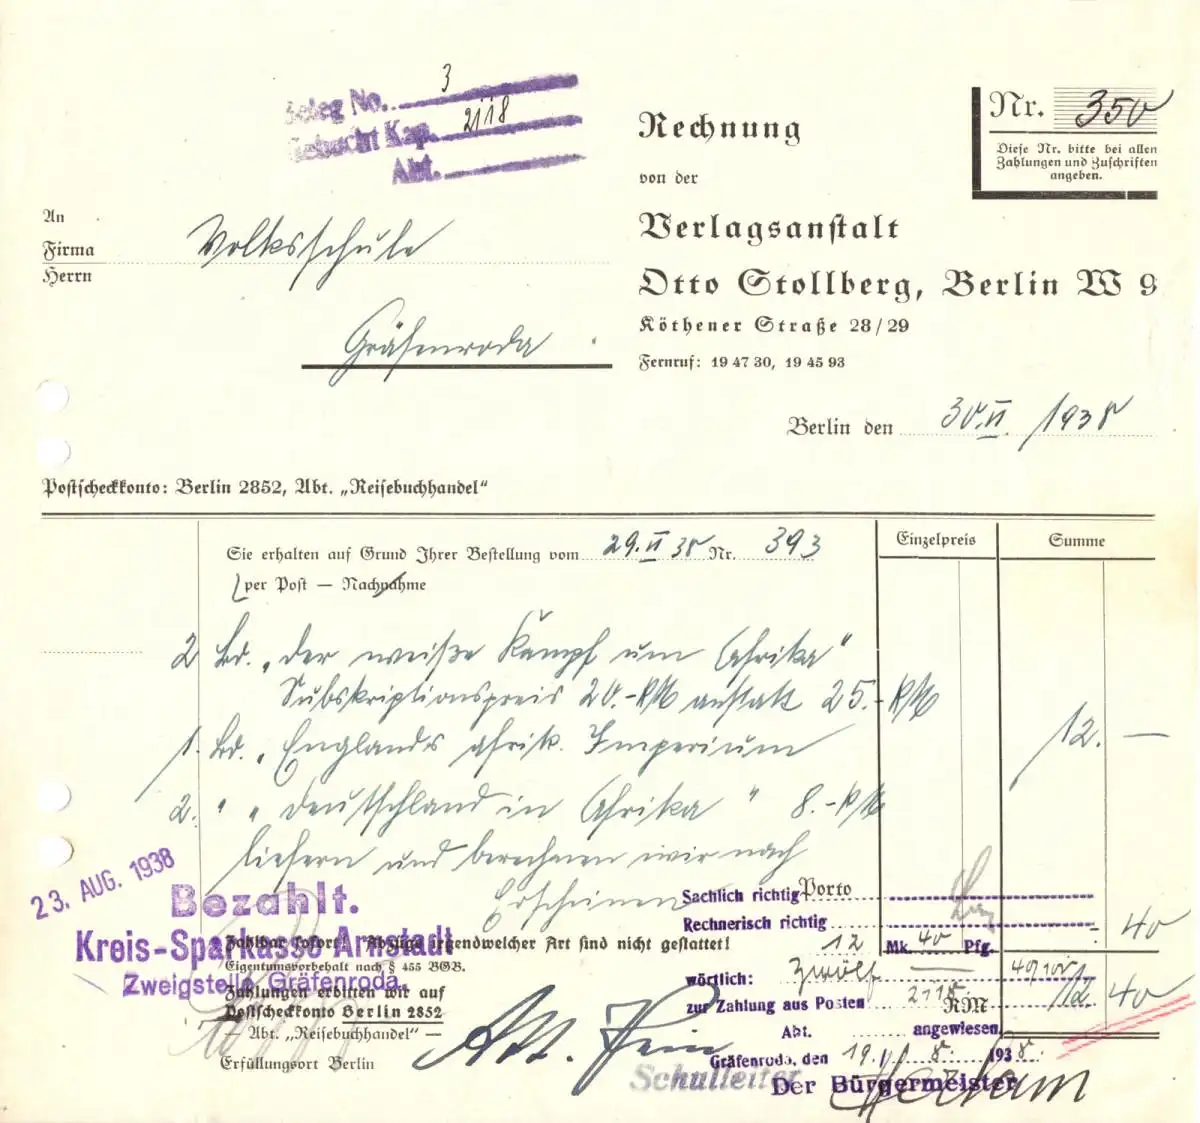 Beleg No. 3
Gebucht Kap. 2118
Abt.
Rechnung
von der
Verlagsanstalt
Otto Stollberg, Berlin W 9
Köthener Straße 28/29
Fernruf: 19 47 30, 19 45 93
Nr. 350
Diese Nr. bitte bei allen
Zahlungen und Zuschriften
angeben.
An
Firma Volksschule
Herrn
Gräfenroda
Berlin den 30. VI. 1938
Postscheckkonto: Berlin 2852, Abt. „Reisebuchhandel“
Sie erhalten auf Grund Ihrer Bestellung vom 29. VI 38 Nr. 393
Einzelpreis
Summe
per Post — Nachnahme
2 Bd. „Der weiße Kampf um Afrika“
Subskriptionspreis 20.- RM anstatt 25.- RM
1. Bd. „Englands afrik. Imperium 12. —
2. " „Deutschland in Afrika" 8.- RM
liefern und berechnen wir nach
Erscheinen
23. AUG. 1938
Bezahlt.
Kreis-Sparkasse Arnstadt
Zweigstelle Gräfenroda.
Porto
40
Zahlbar sofort! Abzüge irgendwelcher Art sind nicht gestattet!
Eigentumsvorbehalt nach § 455 BGB.
Zahlungen erbitten wir auf
Postscheckkonto Berlin 2852
Abt. „Reisebuchhandel“ —
Erfüllungsort Berlin
RM 12. 40
Sachlich richtig
Rechnerisch richtig
12 Mk. 40 Pfg.
wörtlich: Zwölf 40/100
zur Zahlung aus Posten 2118
Abt. angewiesen.
Gräfenroda, den 19. 8. 1938.
Schulleiter
Der Bürgermeister